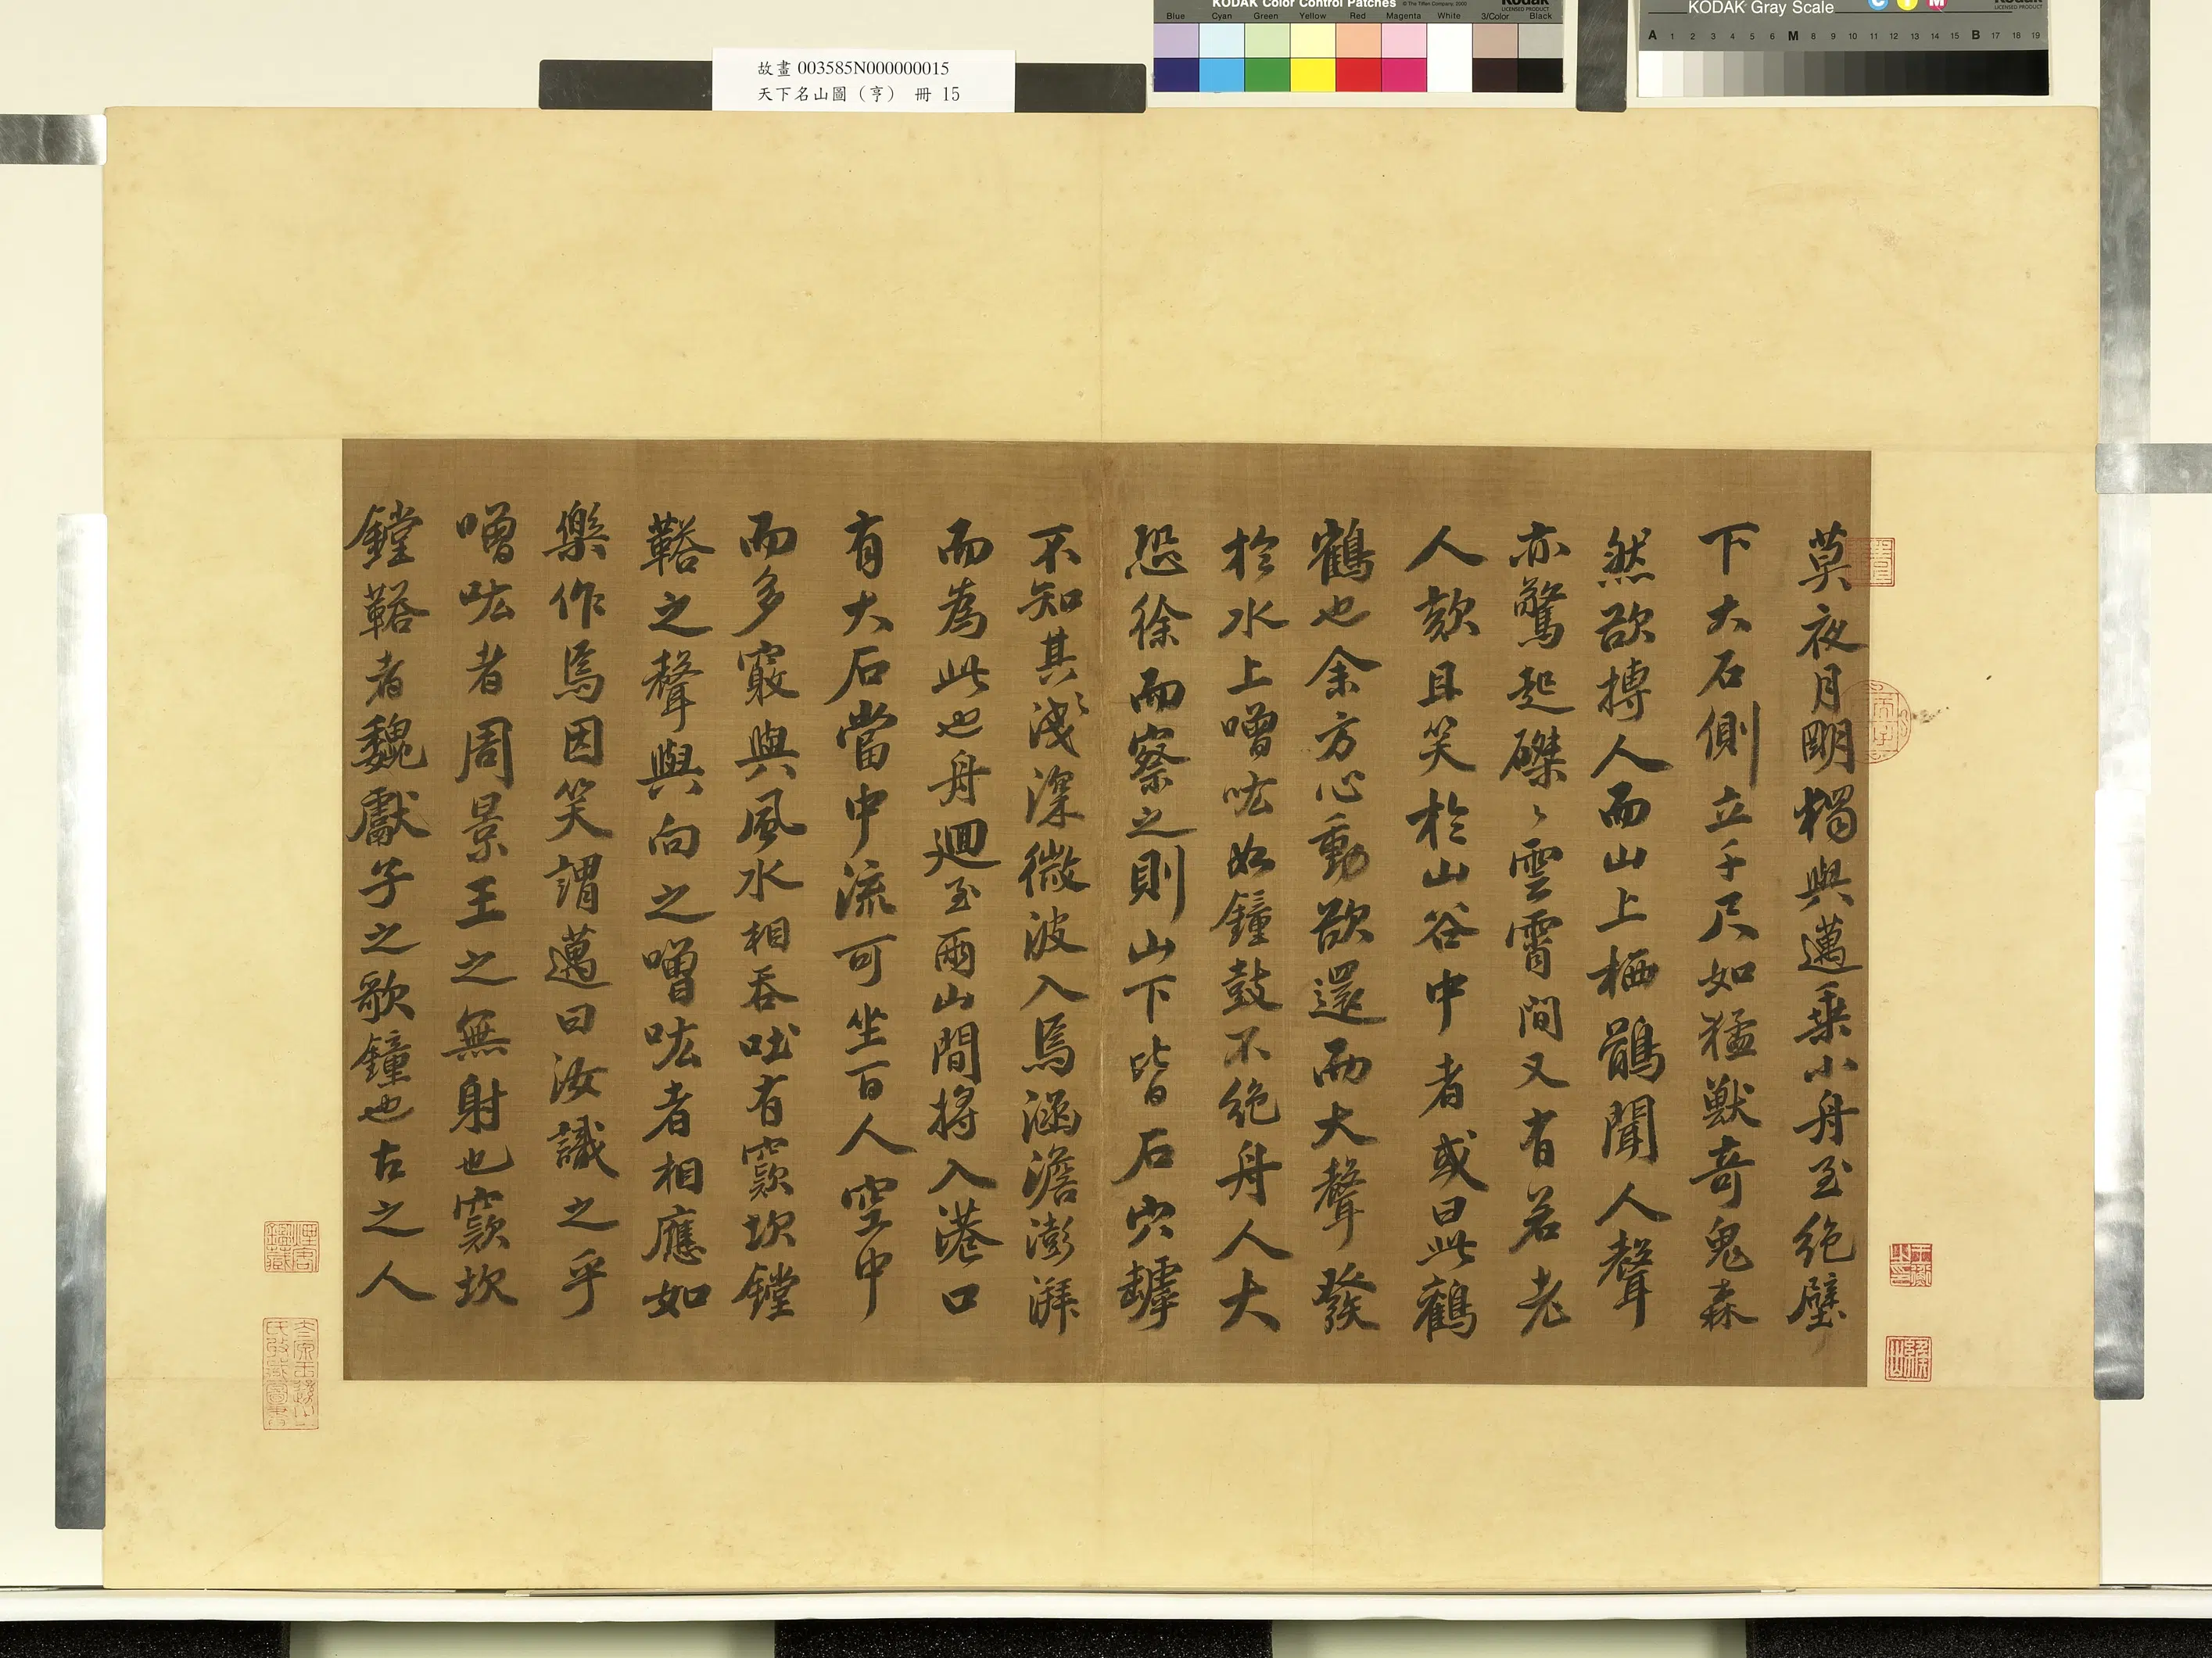 KODAK Color Control Patches
© The Tiffen Company, 2000
Kodak
LICENSED PRODUCT
Blue Cyan Green Yellow Red Magenta White 3/Color Black
KODAK Gray Scale
C Y M
Kodak
LICENSED PRODUCT
A 1 2 3 4 5 6 M 8 9 10 11 12 13 14 15 B 17 18 19
故畫003585N000000015
天下名山圖（亨） 冊 15
莫夜月明獨與邁乘小舟至絕壁
下大石側立千尺如猛獸奇鬼森
然欲搏人而山上栖鶻聞人聲
亦驚起磔〻雲霄間又有若老
人欬且笑於山谷中者或曰此鸛
鶴也余方心動欲還而大聲發
於水上噌吰如鐘鼓不絕舟人大
恐徐而察之則山下皆石穴罅
不知其淺深微波入焉涵澹澎湃
而為此也舟迴至兩山間將入港口
有大石當中流可坐百人空中
而多竅與風水相吞吐有窾坎鏜
鞳之聲與向之噌吰者相應如
樂作焉因笑謂邁曰汝識之乎
噌吰者周景王之無射也窾坎
鏜鞳者魏獻子之歌鐘也古之人